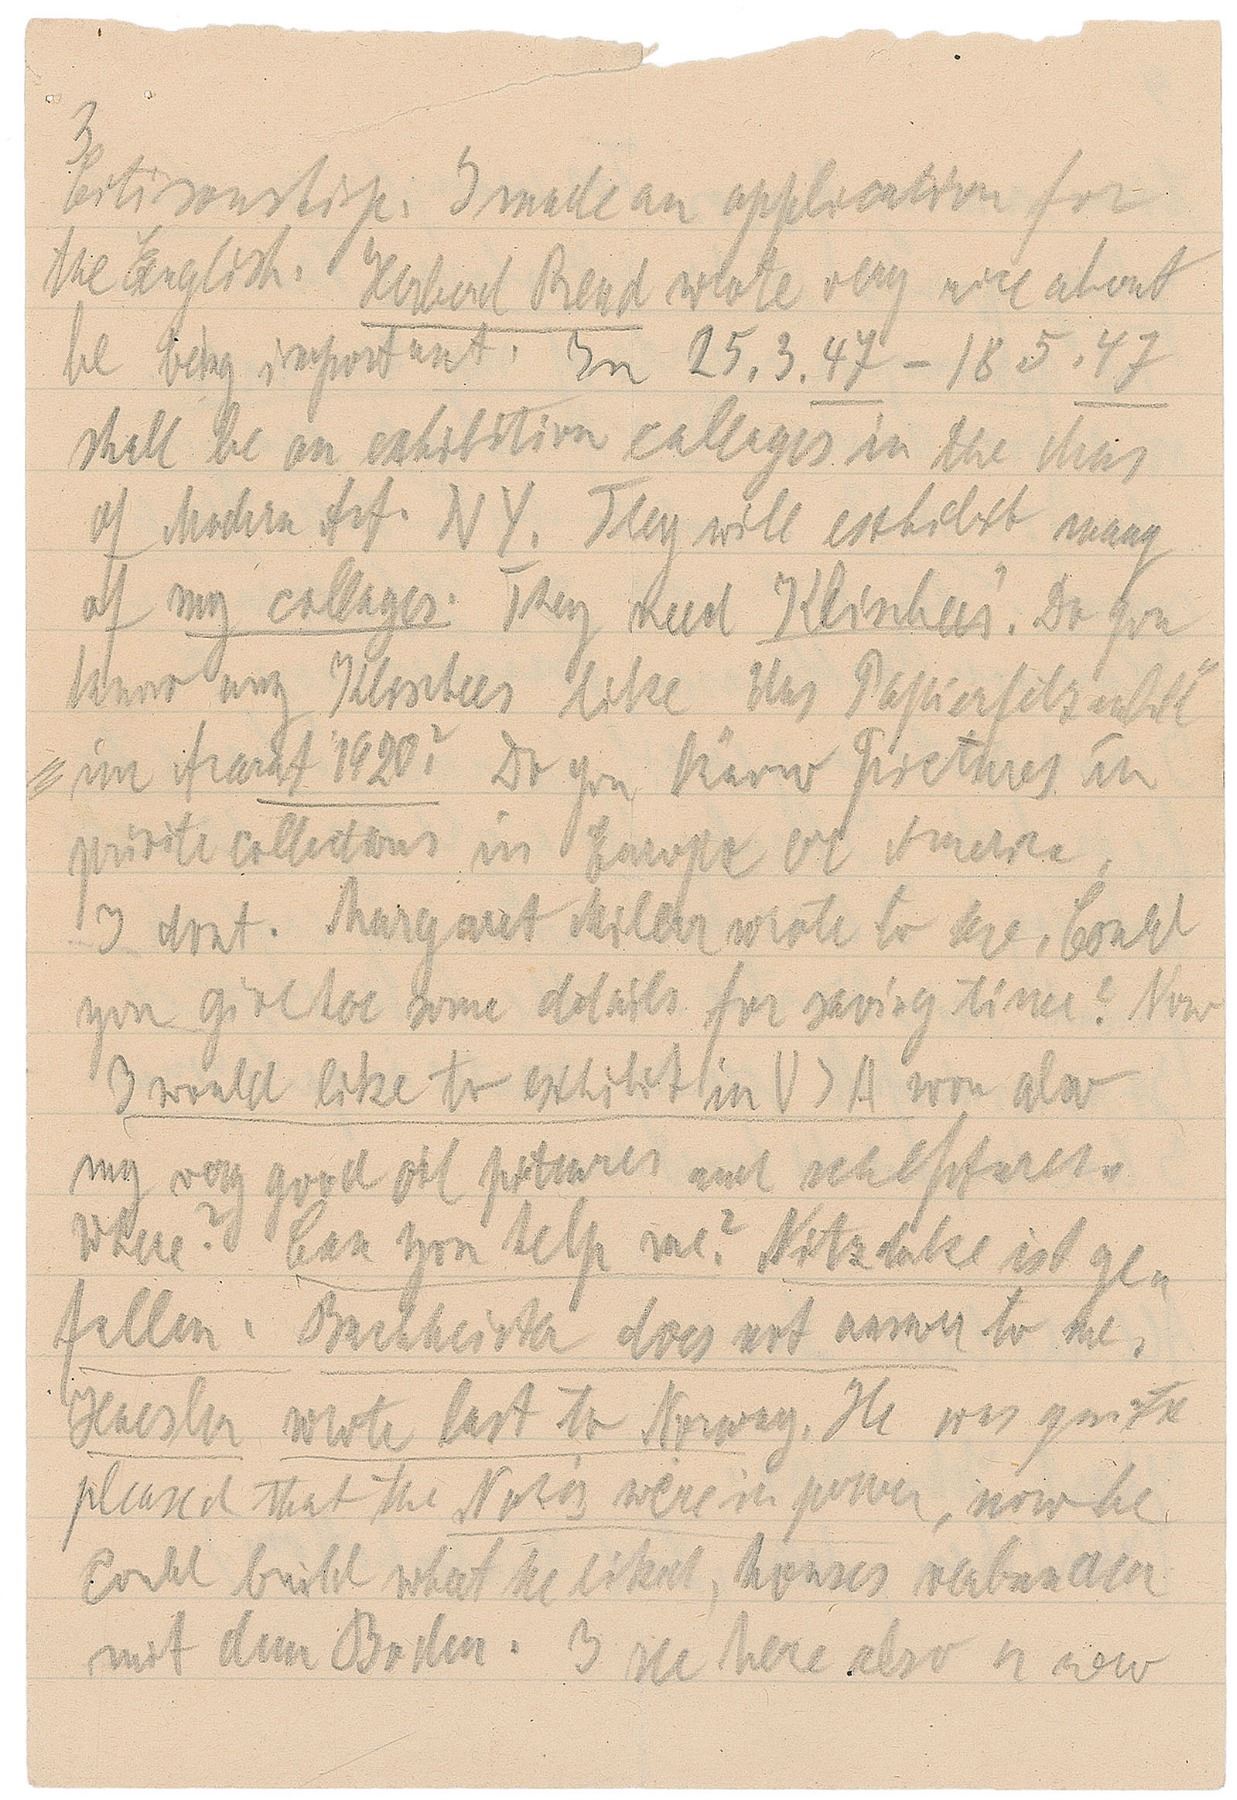 3
Citisonship. I made an application for
the English. Herbert Read wrote very nice about
be being important. In 25.3.47 – 18.5.47
shall be an exhibition collages in the Mus
of Modern Art. NY. They will exhibit many
of my collages. They need Klischees. Do you
know any Klischees like das Papierfilzschrift
im Ararat 1920? Do you know pictures in
private collections in Europe or America,
I dont. Margaret Miller wrote to me. Could
you give me some details for saving time? Now
I would like to exhibit in USA now also
my very good oil pictures and sculptures.
Where? Can you help me? Nitzschke ist ge=
fallen. Buchheister does not answer to me.
Haesler wrote last to Norway. He was quite
pleased that the Nazis were in power, now he
could build what he liked, houses verbunden
mit dem Boden. I see here also a new